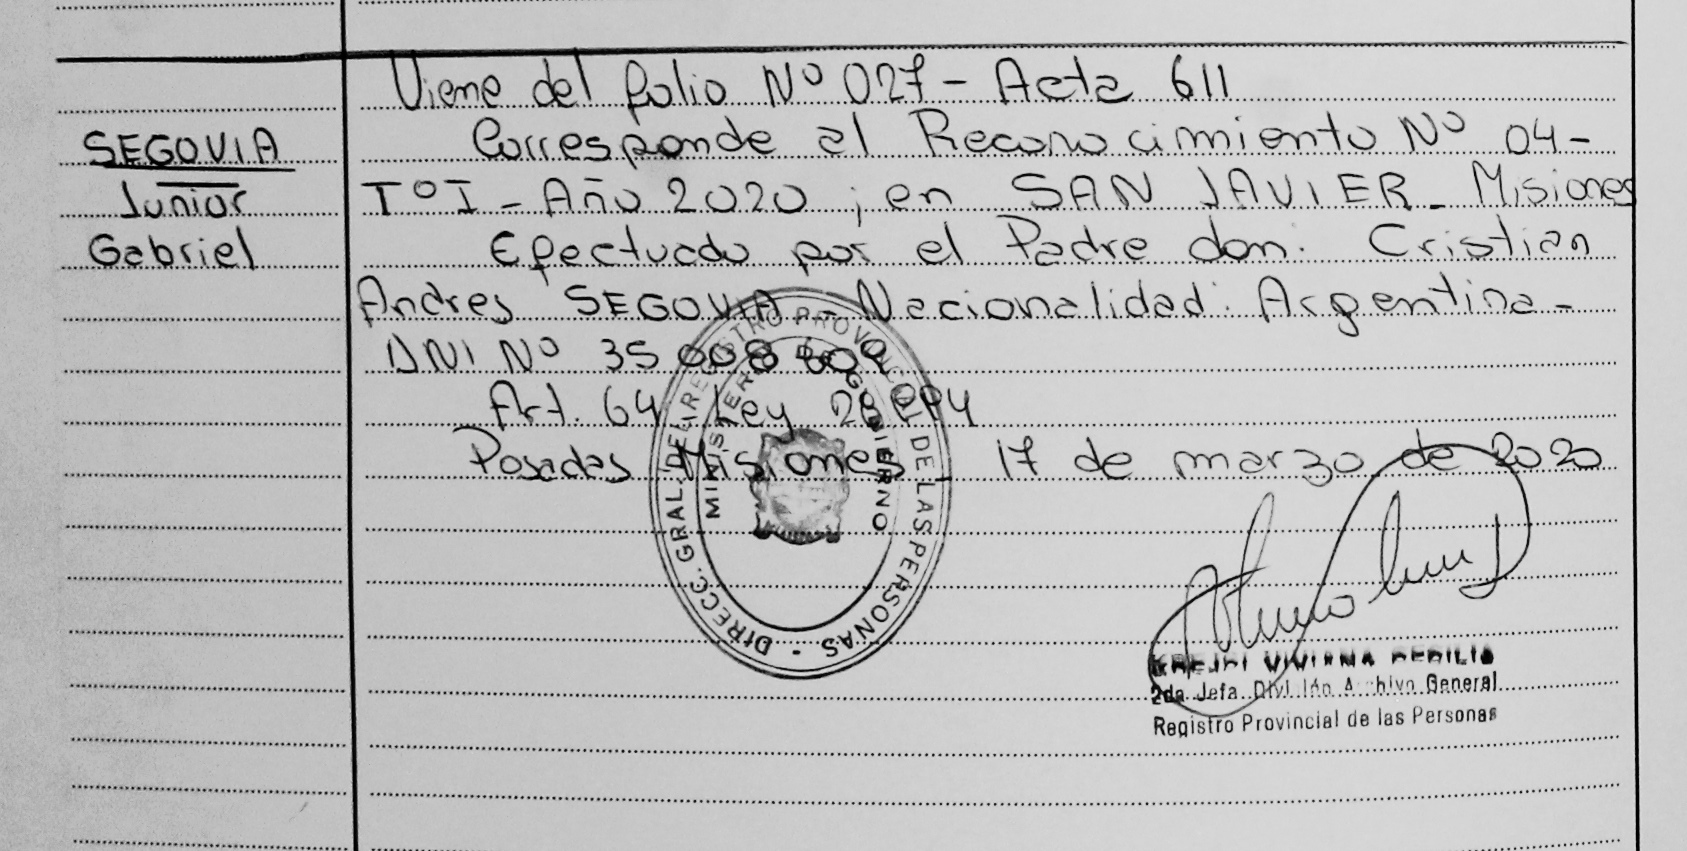 Viene del folio Nº 027 - Acta 611
SEGOVIA
Junior
Gabriel
Corresponde al Reconocimiento Nº 04 -
TºI - Año 2020 ; en SAN JAVIER - Misiones
Efectuado por el Padre don: Cristian
Andres SEGOVIA - Nacionalidad: Argentina -
DNI Nº 35 008
Art. 64 Ley
Posadas Misiones - 17 de marzo de 2020
DIRECC. GRAL. DEL REGISTRO PROVINCIAL DE LAS PERSONAS
MINISTERIO DE GOBIERNO
VIVIANA
2da Jefa División Archivo General
Registro Provincial de las Personas